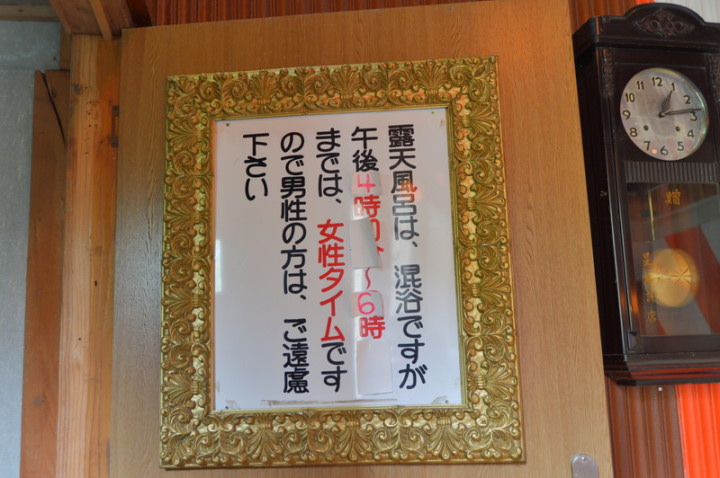 露天風呂は、混浴ですが
午後4時〜6時
までは、女性タイムです
ので男性の方は、ご遠慮
下さい
12
1
2
3
4
5
6
7
8
9
10
11
贈